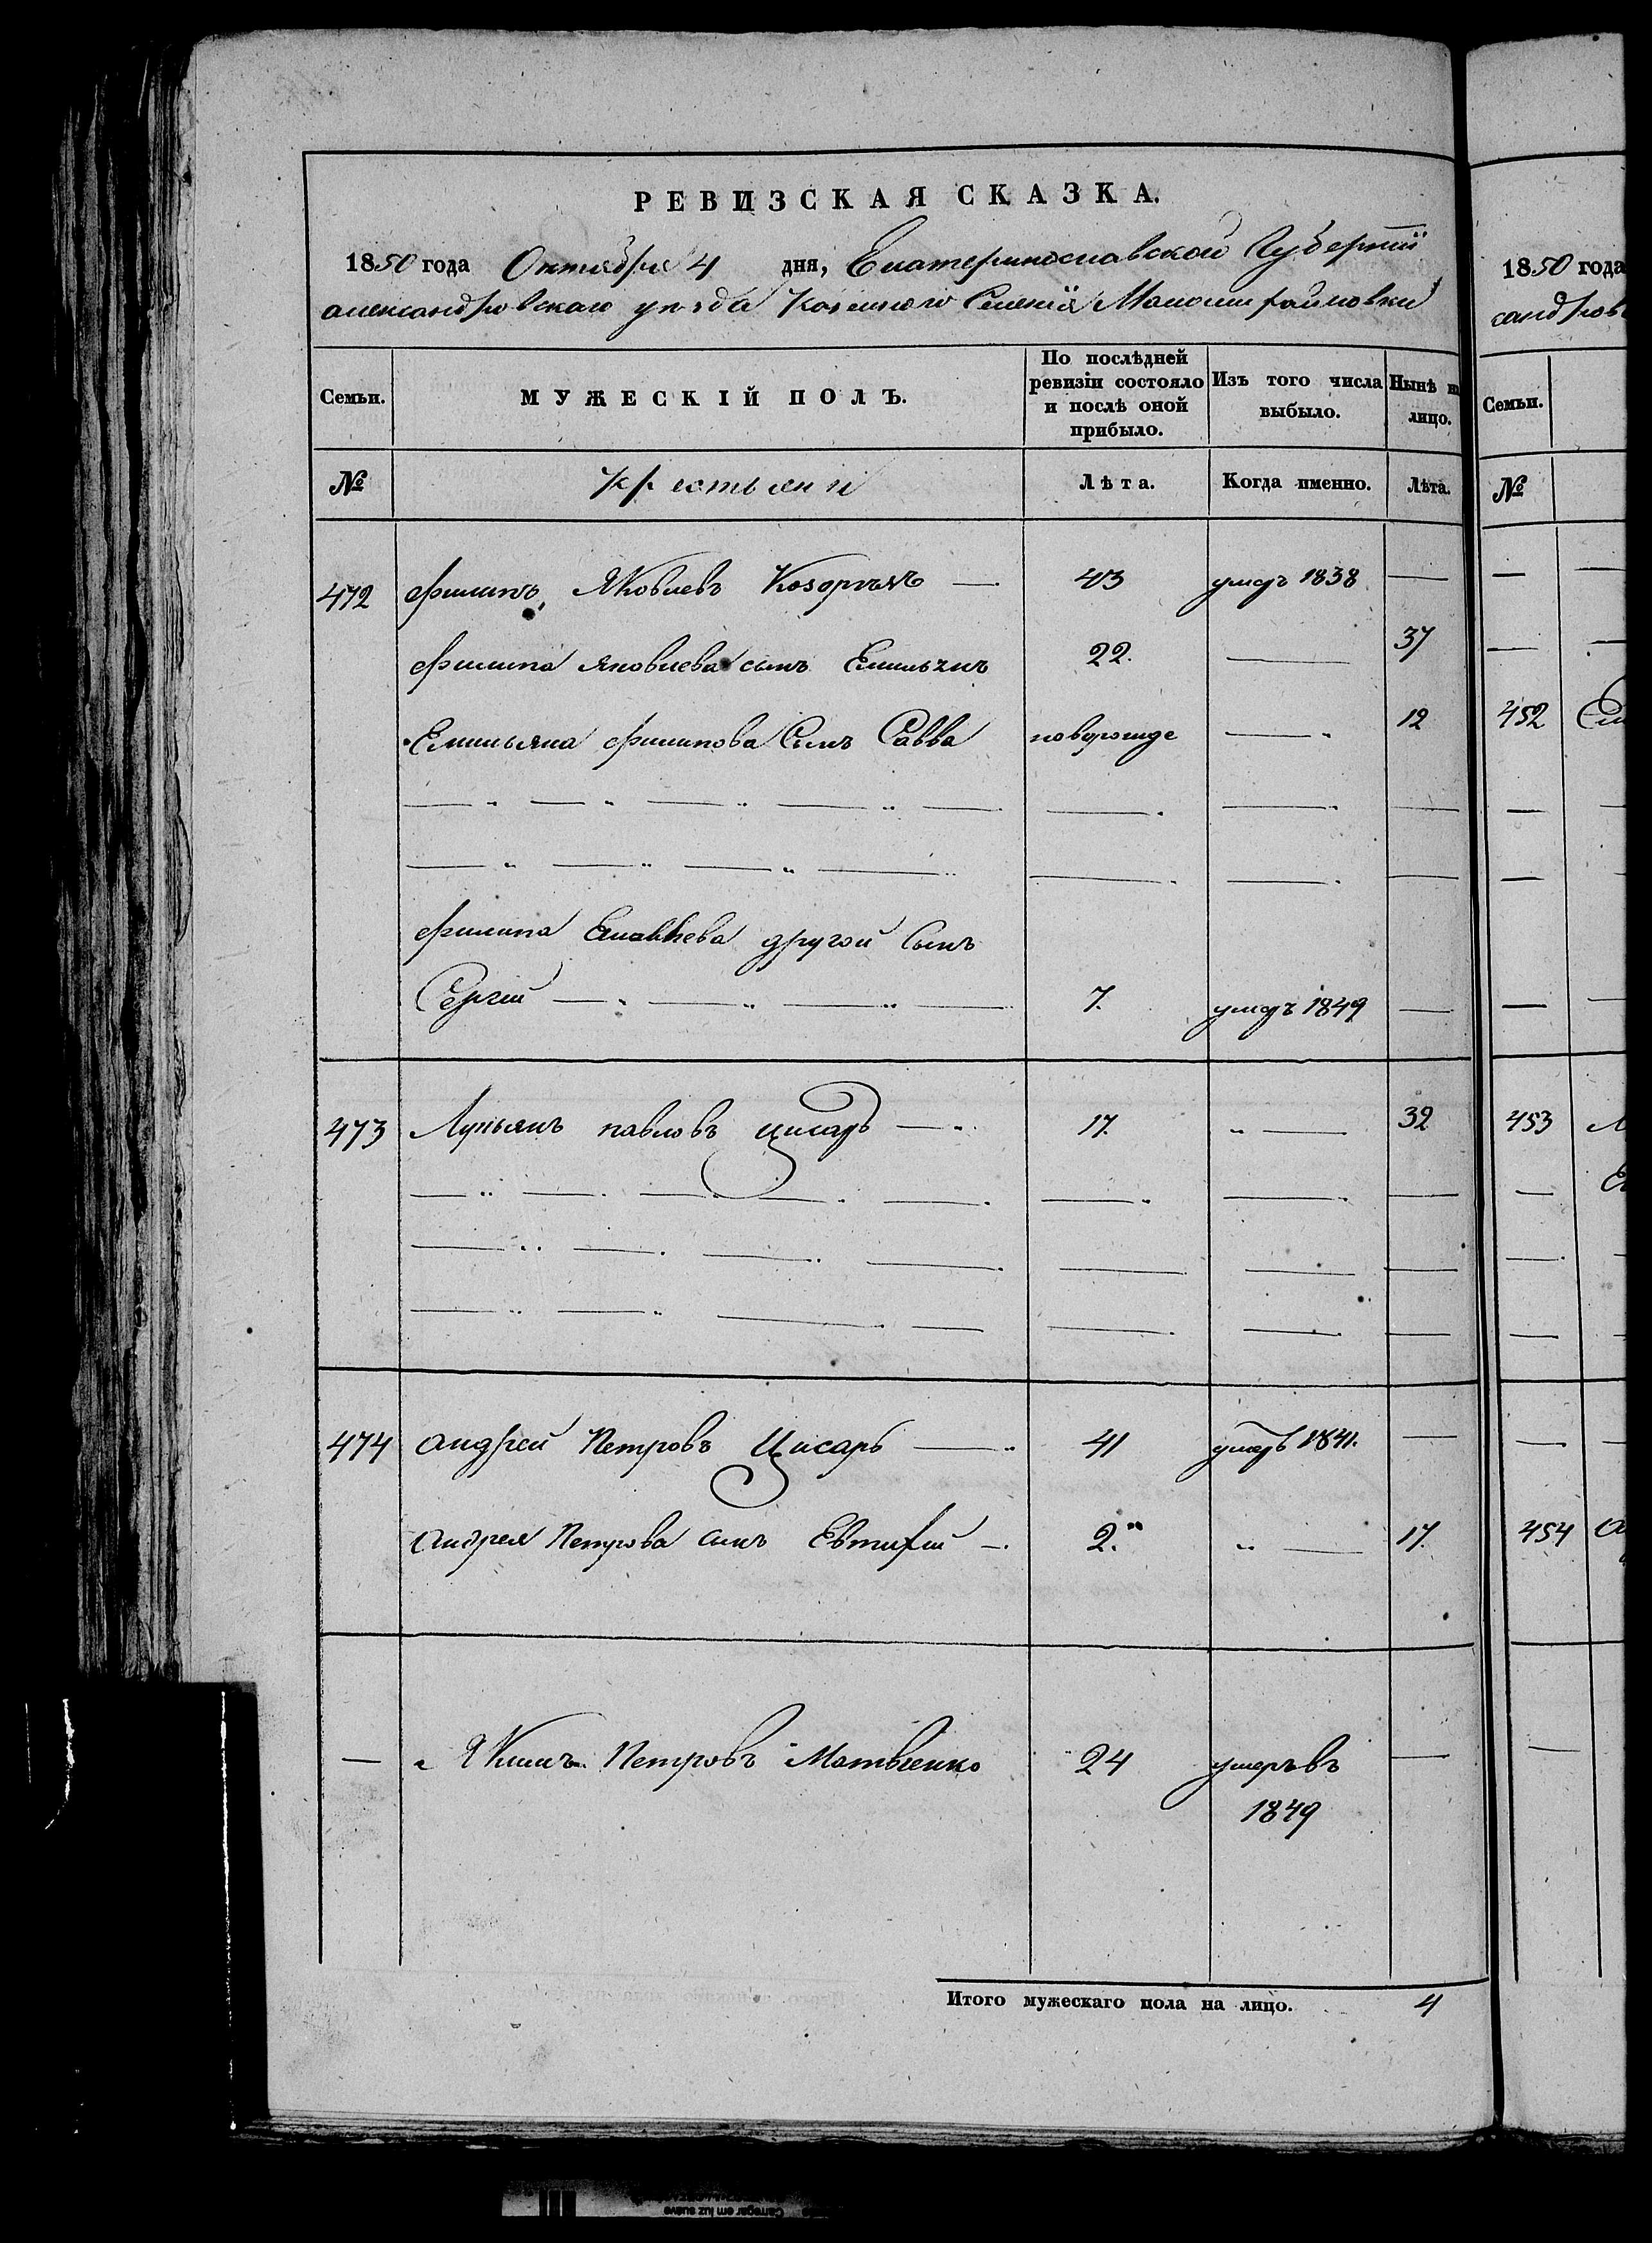 РЕВИЗСКАЯ СКАЗКА.
1850 года Октября 4 дня, Екатеринославской Губернии
александровскаго уезда Казеннаго Селенія Малоинтайловки
Семьи. МУЖЕСКІЙ ПОЛЪ. По послѣдней ревизіи состояло и послѣ оной прибыло. Изъ того числа выбыло. Нынѣ на лицо.
№ крестьяни Лѣта. Когда именно. Лѣта.
472 Филипъ Яковлевъ Козорѣзъ — 43 умеръ 1838 —
Филипа Яковлева сынъ Емильянъ 22. — 37
Емильяна Филипова Сынъ Савва новорожде — 12
Филипа другой Сынъ
Сергій — 7. умеръ 1849 —
473 Лукьянъ павловъ цисарь — 17. — 32
474 андрей Петровъ Цисарь — 41 умеръ 1841. —
Андрея Петрова сынъ Евтифій — 2. — 17
— Якимъ Петровъ Матвіенко 24 умеръ въ —
1849
Итого мужескаго пола на лицо. 4
1850 года
сандров
Семьи.
№
452
453
454